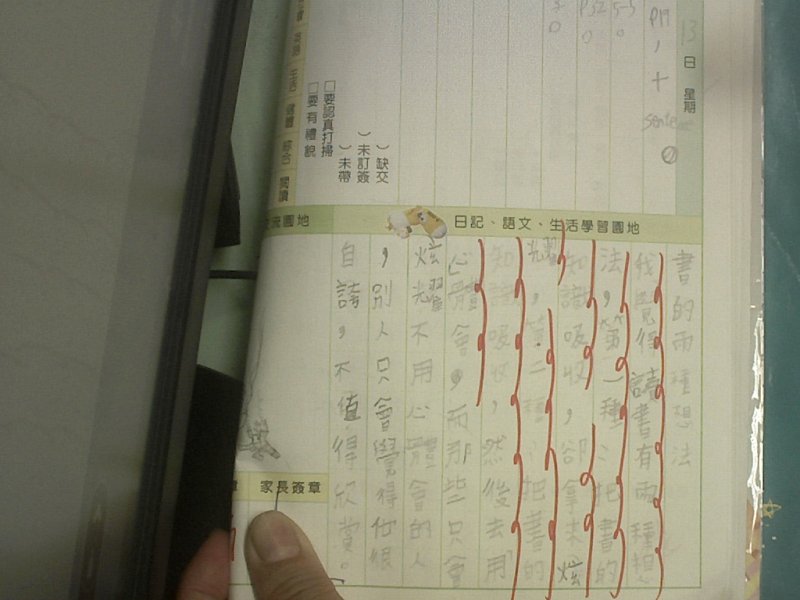 13日 星期
PM , 十
5-5
P32
□要認真打掃
□要有禮貌
)缺交
)未訂簽
)未帶
英語 生活 健體 綜合 閱讀
日記、語文、生活學習園地
流園地
書的兩種想法
我覺得讀書有兩種想
法,第一種:把書的
知識吸收,卻拿來炫
耀,第二種:把書的
知識吸收,然後去用
心體會,而那些只會
炫耀不用心體會的人
,別人只會覺得他很
自誇,不值得欣賞。
家長簽章
章